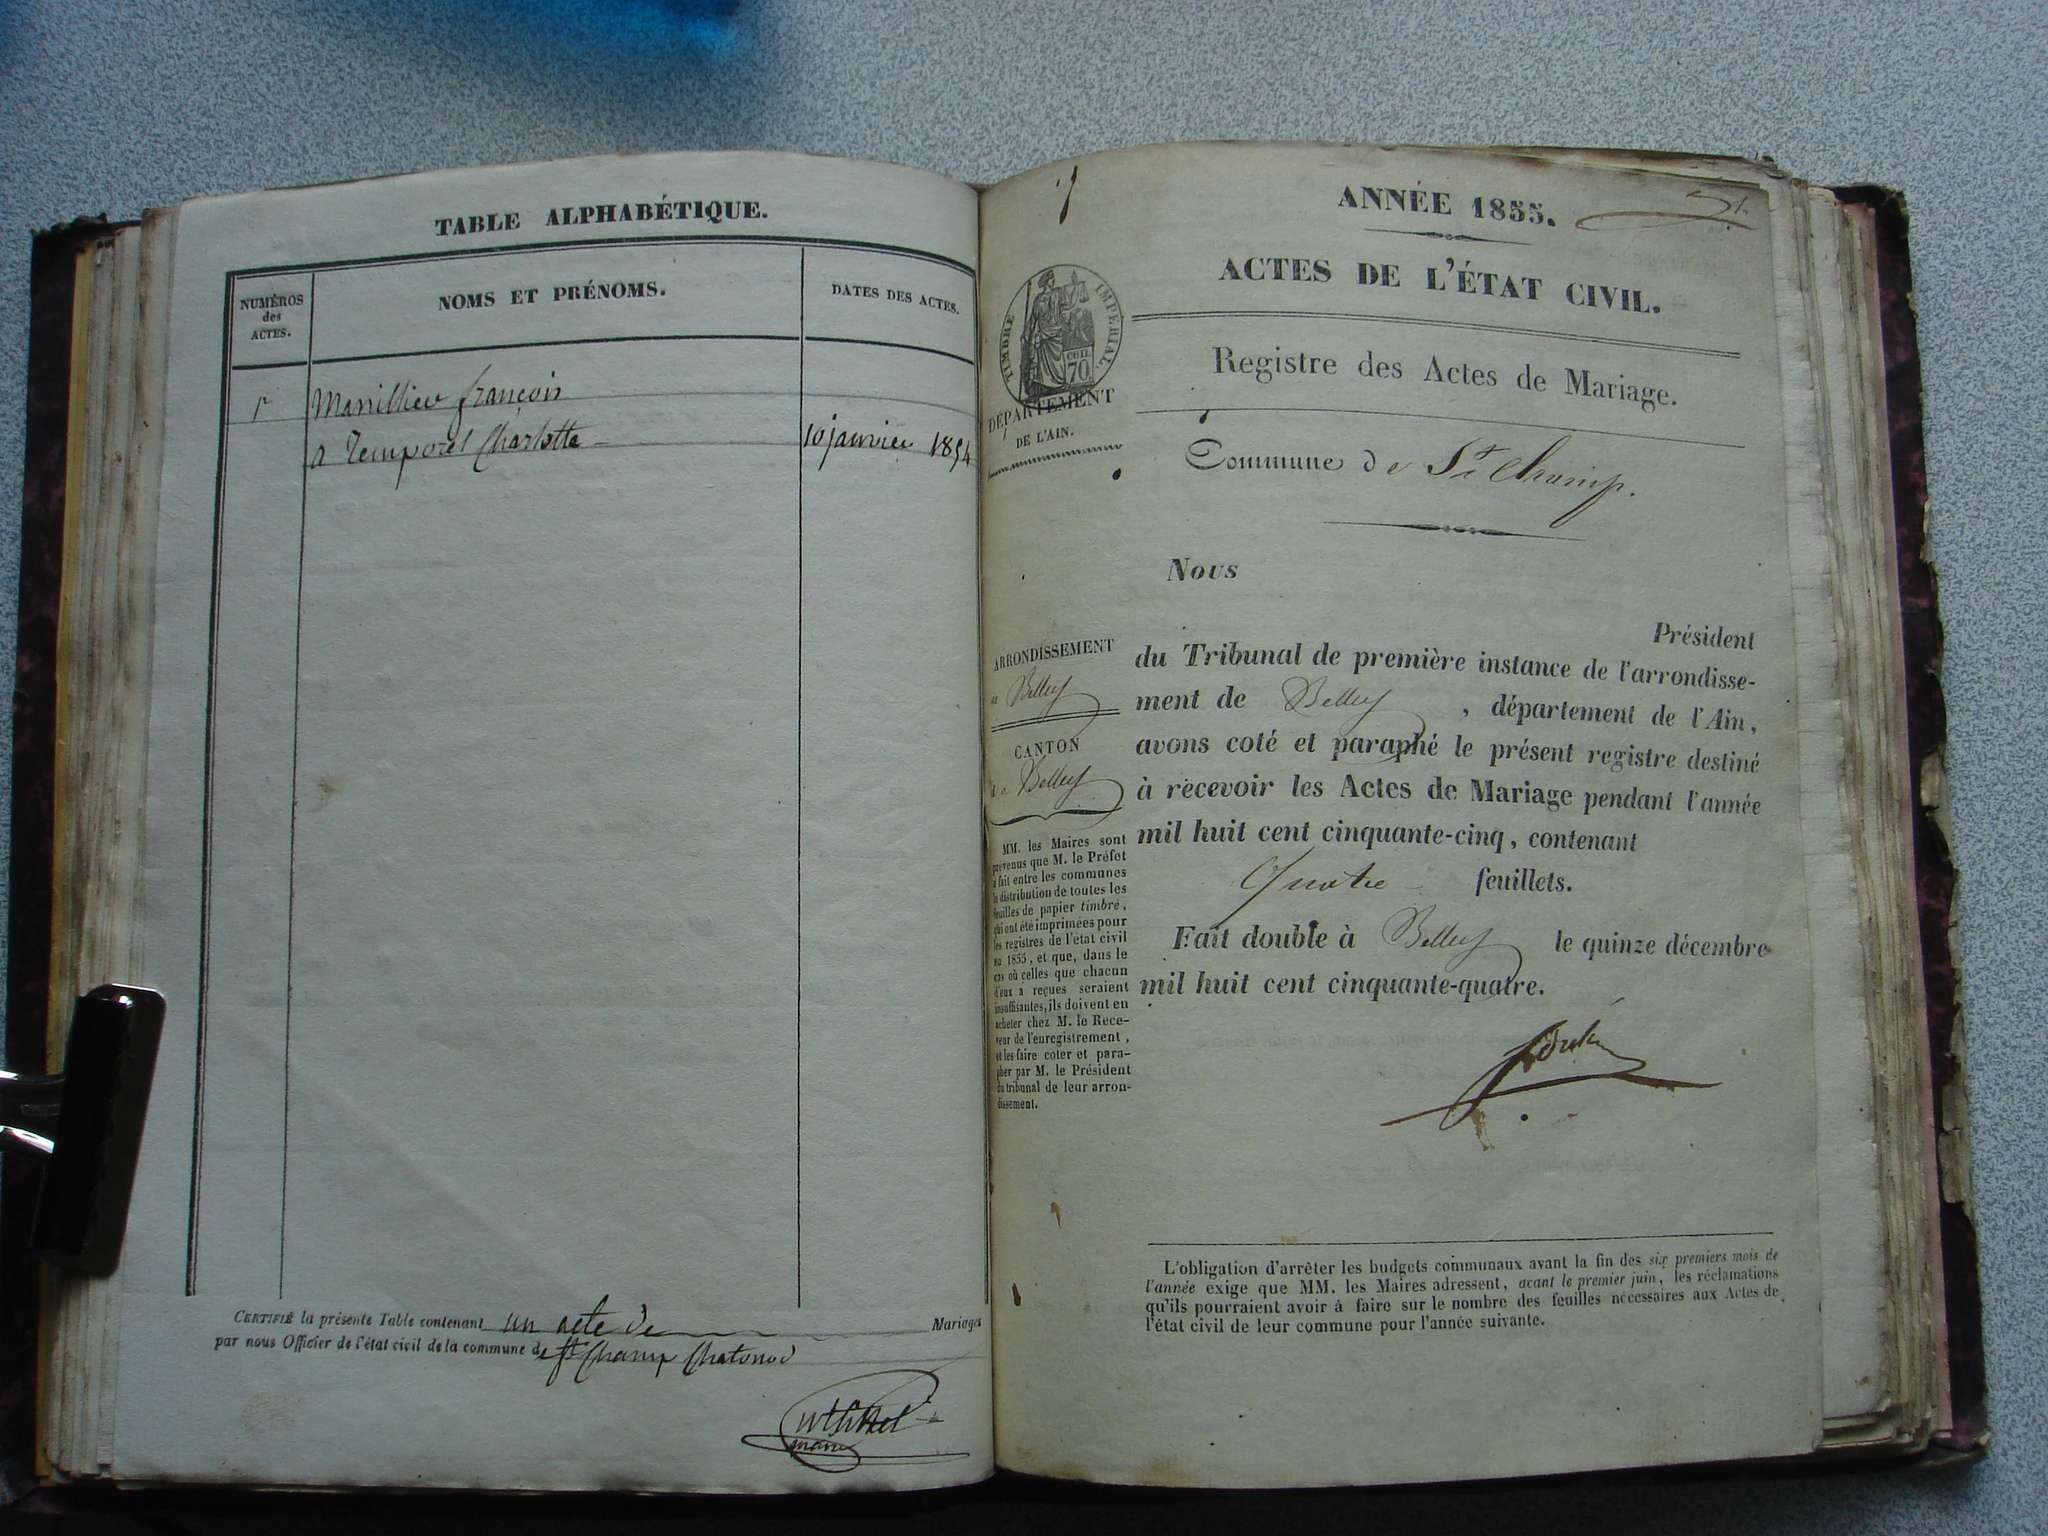 TABLE ALPHABÉTIQUE.
NUMÉROS
des
ACTES.
NOMS ET PRÉNOMS.
DATES DES ACTES.
1r
François
a Temporel Charlotte
10 janvier 1854
CERTIFIÉ la présente Table contenant un acte de Mariages
par nous Officier de l'état civil de la commune de St Champ Chatonod
maire
ANNÉE 1855.
ACTES DE L'ÉTAT CIVIL.
TIMBRE IMPÉRIAL.
CEN. 70
DÉPARTEMENT
DE L'AIN.
Registre des Actes de Mariage.
Commune de St Champ.
Nous
Président
du Tribunal de première instance de l'arrondisse-
ment de Belley, département de l'Ain,
avons coté et paraphé le présent registre destiné
à recevoir les Actes de Mariage pendant l'année
mil huit cent cinquante-cinq, contenant
Quatre feuillets.
Fait double à Belley le quinze décembre
mil huit cent cinquante-quatre.
ARRONDISSEMENT
de Belley
CANTON
de Belley
MM. les Maires sont
prévenus que M. le Préfet
a fait entre les communes
la distribution de toutes les
feuilles de papier timbré,
qui ont été imprimées pour
les registres de l'état civil
en 1855, et que, dans le
cas où celles que chacun
d'eux a reçues seraient
insuffisantes, ils doivent en
acheter chez M. le Rece-
veur de l'enregistrement,
et les faire coter et para-
pher par M. le Président
du tribunal de leur arron-
dissement.
L'obligation d'arrêter les budgets communaux avant la fin des six premiers mois de
l'année exige que MM. les Maires adressent, avant le premier juin, les réclamations
qu'ils pourraient avoir à faire sur le nombre des feuilles nécessaires aux Actes de
l'état civil de leur commune pour l'année suivante.